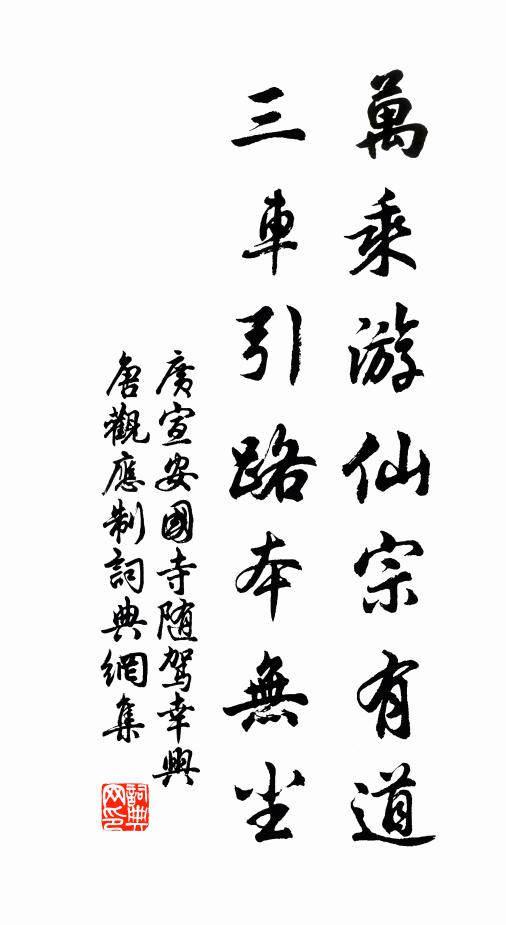 萬乘游仙宗有道
三車引路本無尘
廣宣安國寺随駕幸興
唐觀應制詞典網集
詞典网印